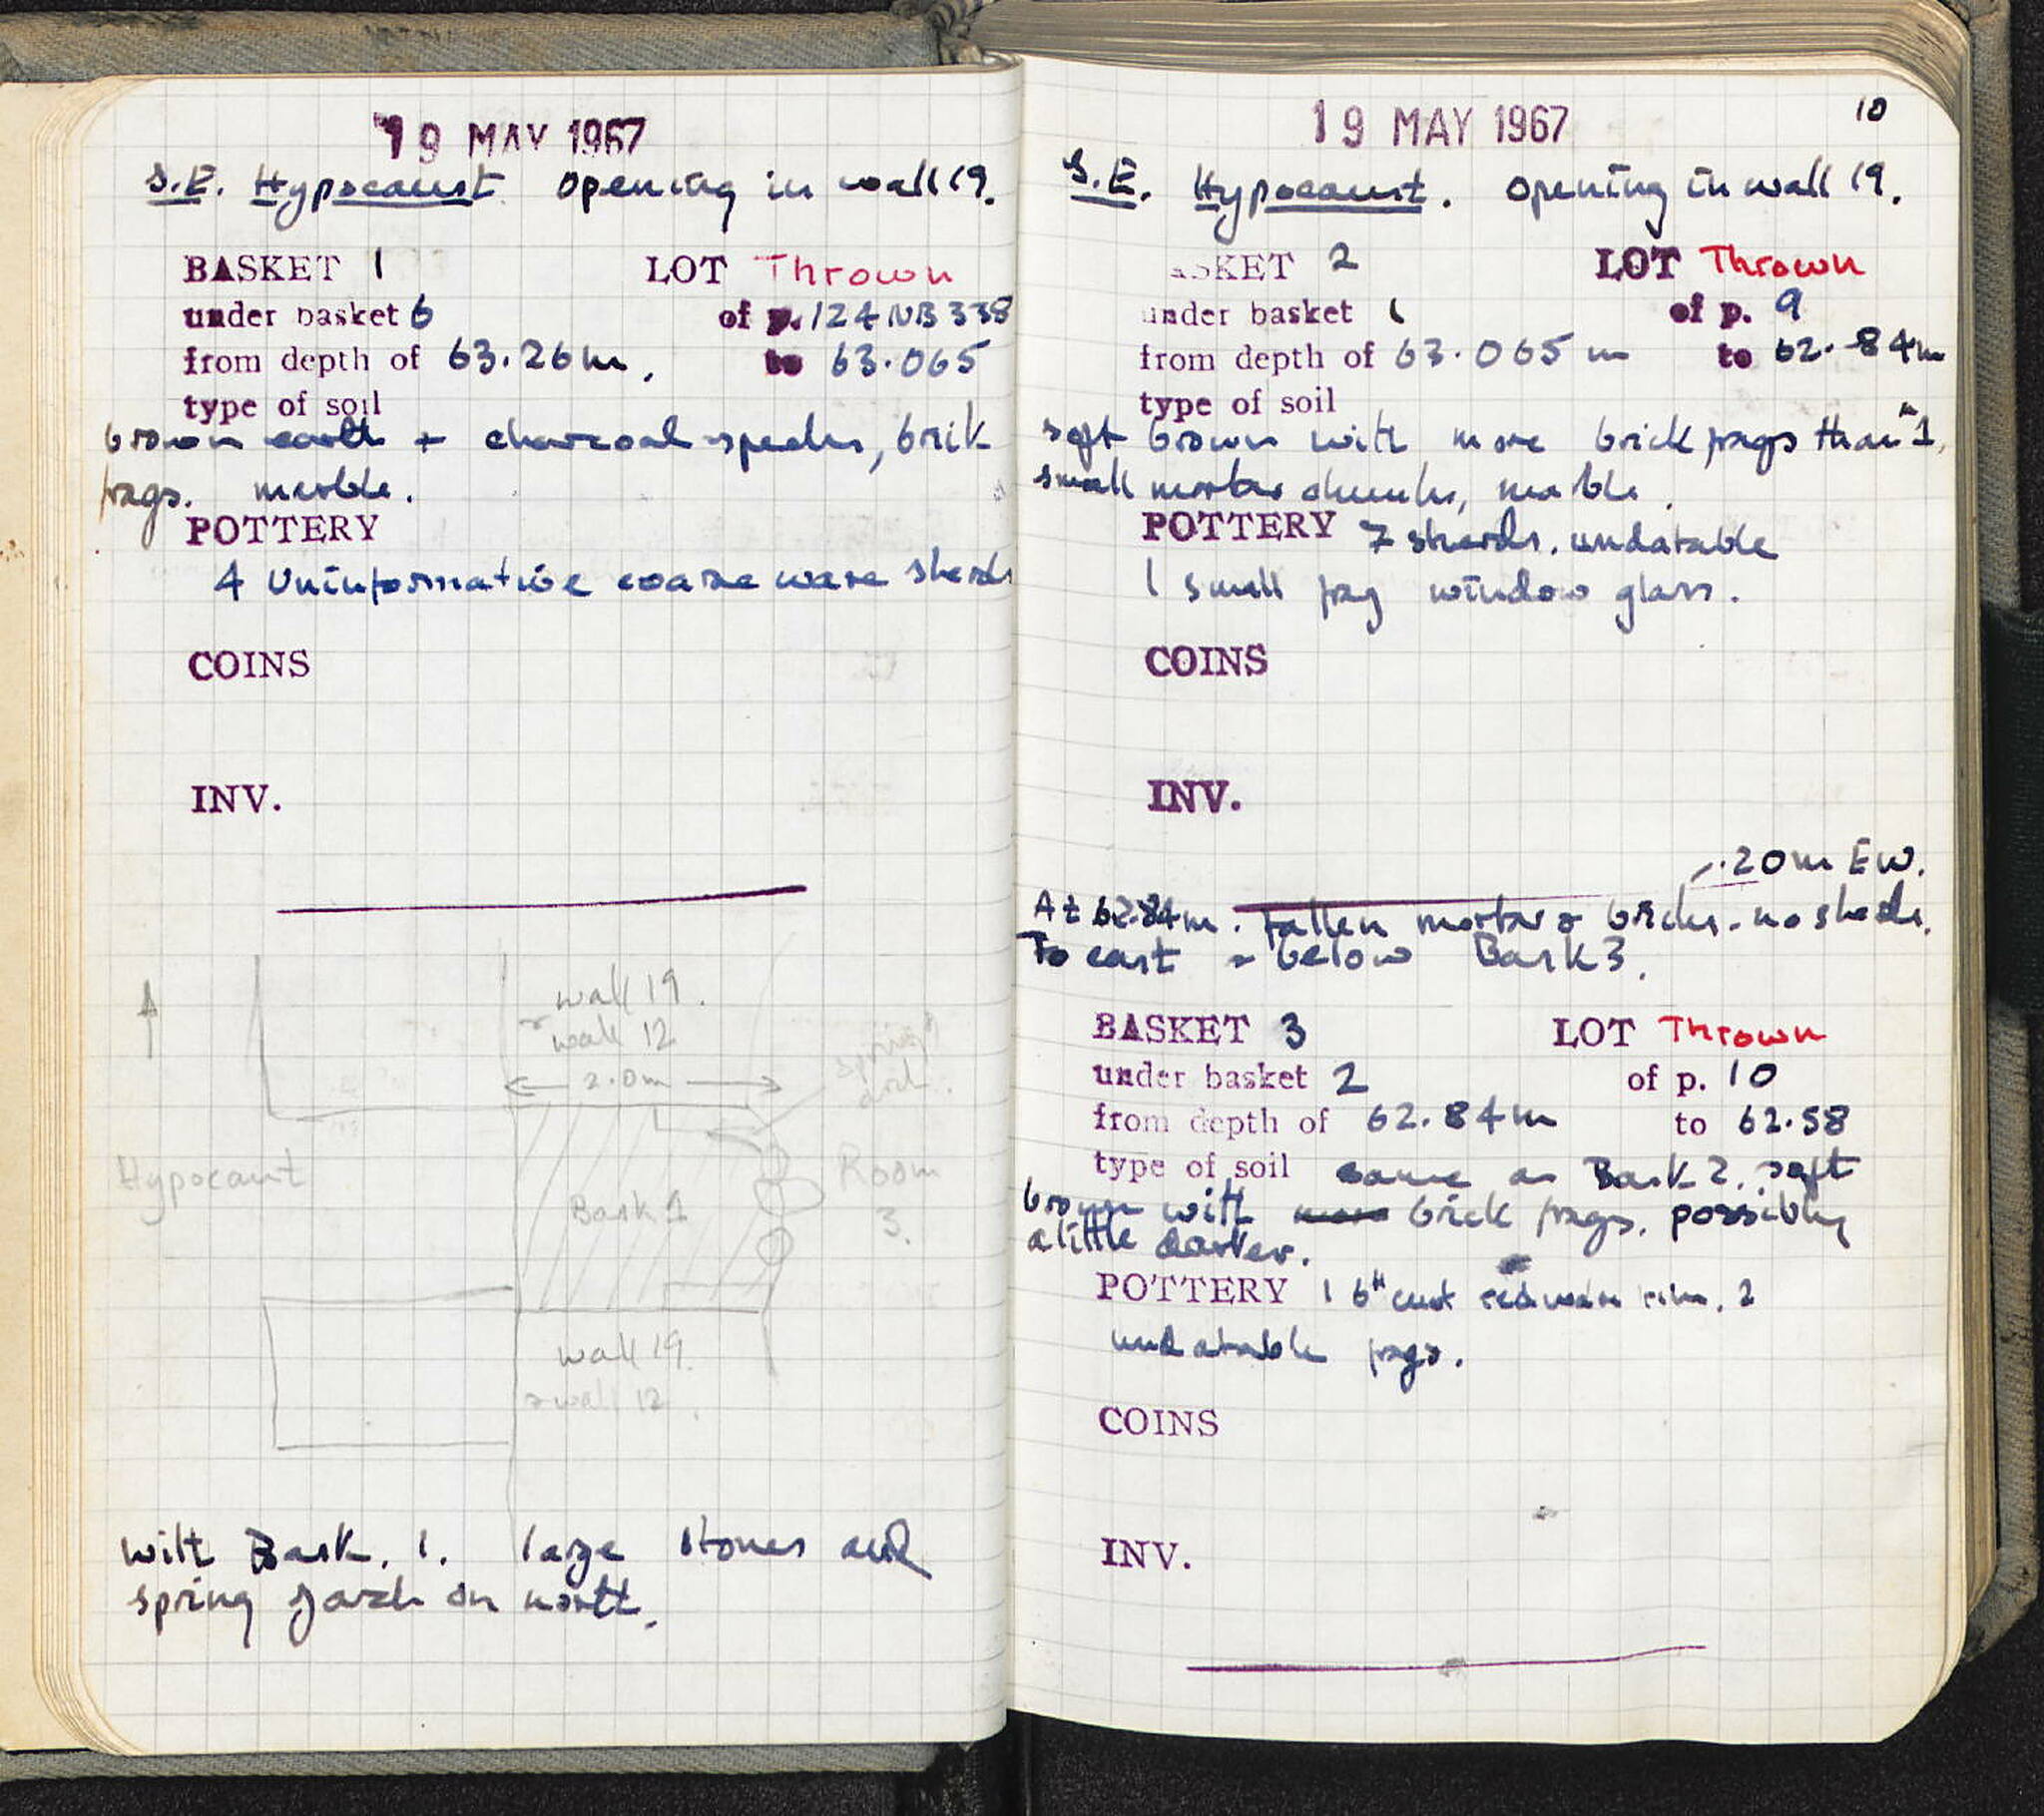 19 MAY 1967
S.E. Hypocaust opening in wall 19.
BASKET 1 LOT Thrown
under basket 6 of p. 124 NB 338
from depth of 63.26m. to 63.065
type of soil
brown earth + charcoal specks, brik
frags. marble.
POTTERY
4 Uninformative coarse ware sherds
COINS
INV.
wall 19.
wall 12
2.0m
spring of
arch.
Hypocaust
Bask 1
Room
3.
wall 19.
& wall 12.
with Bask. 1. large stones and
spring of arch on north.
10
19 MAY 1967
S.E. Hypocaust. opening in wall 19.
BASKET 2 LOT Thrown
under basket 1 of p. 9
from depth of 63.065 m to 62.84m
type of soil
soft brown with more brick frags than 1,
small mortar chunks, marble.
POTTERY 7 sherds. undatable
1 small frag window glass.
COINS
INV.
.20m EW.
At 62.84m. Fallen mortar & bricks - no sherds.
To east & below Bask 3.
BASKET 3 LOT Thrown
under basket 2 of p. 10
from depth of 62.84m to 62.58
type of soil same as Bask 2. soft
brown with more brick frags. possibly
a little darker.
POTTERY 1 6th cent red ware rim, 2
undatable frags.
COINS
INV.